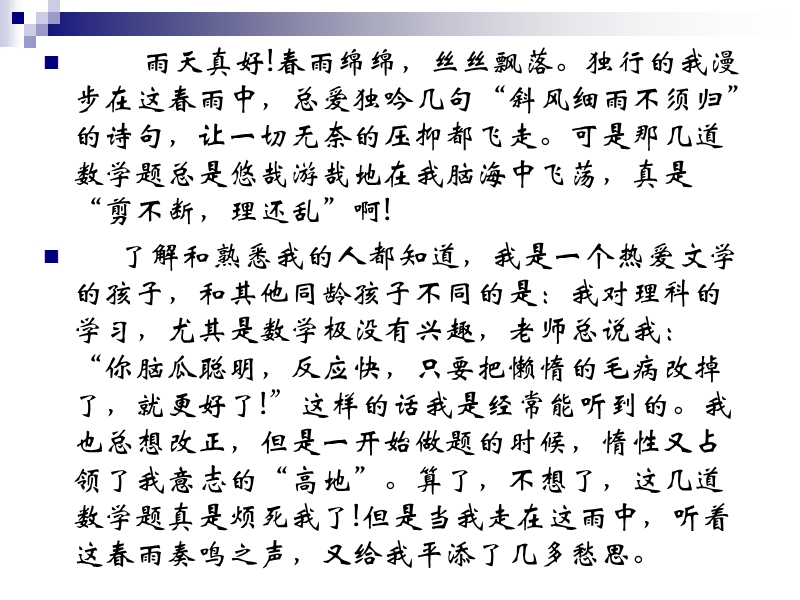 雨天真好!春雨绵绵，丝丝飘落。独行的我漫
步在这春雨中，总爱独吟几句“斜风细雨不须归”
的诗句，让一切无奈的压抑都飞走。可是那几道
数学题总是悠哉游哉地在我脑海中飞荡，真是
“剪不断，理还乱”啊!
了解和熟悉我的人都知道，我是一个热爱文学
的孩子，和其他同龄孩子不同的是：我对理科的
学习，尤其是数学极没有兴趣，老师总说我：
“你脑瓜聪明，反应快，只要把懒惰的毛病改掉
了，就更好了!”这样的话我是经常能听到的。我
也总想改正，但是一开始做题的时候，惰性又占
领了我意志的“高地”。算了，不想了，这几道
数学题真是烦死我了!但是当我走在这雨中，听着
这春雨奏鸣之声，又给我平添了几多愁思。